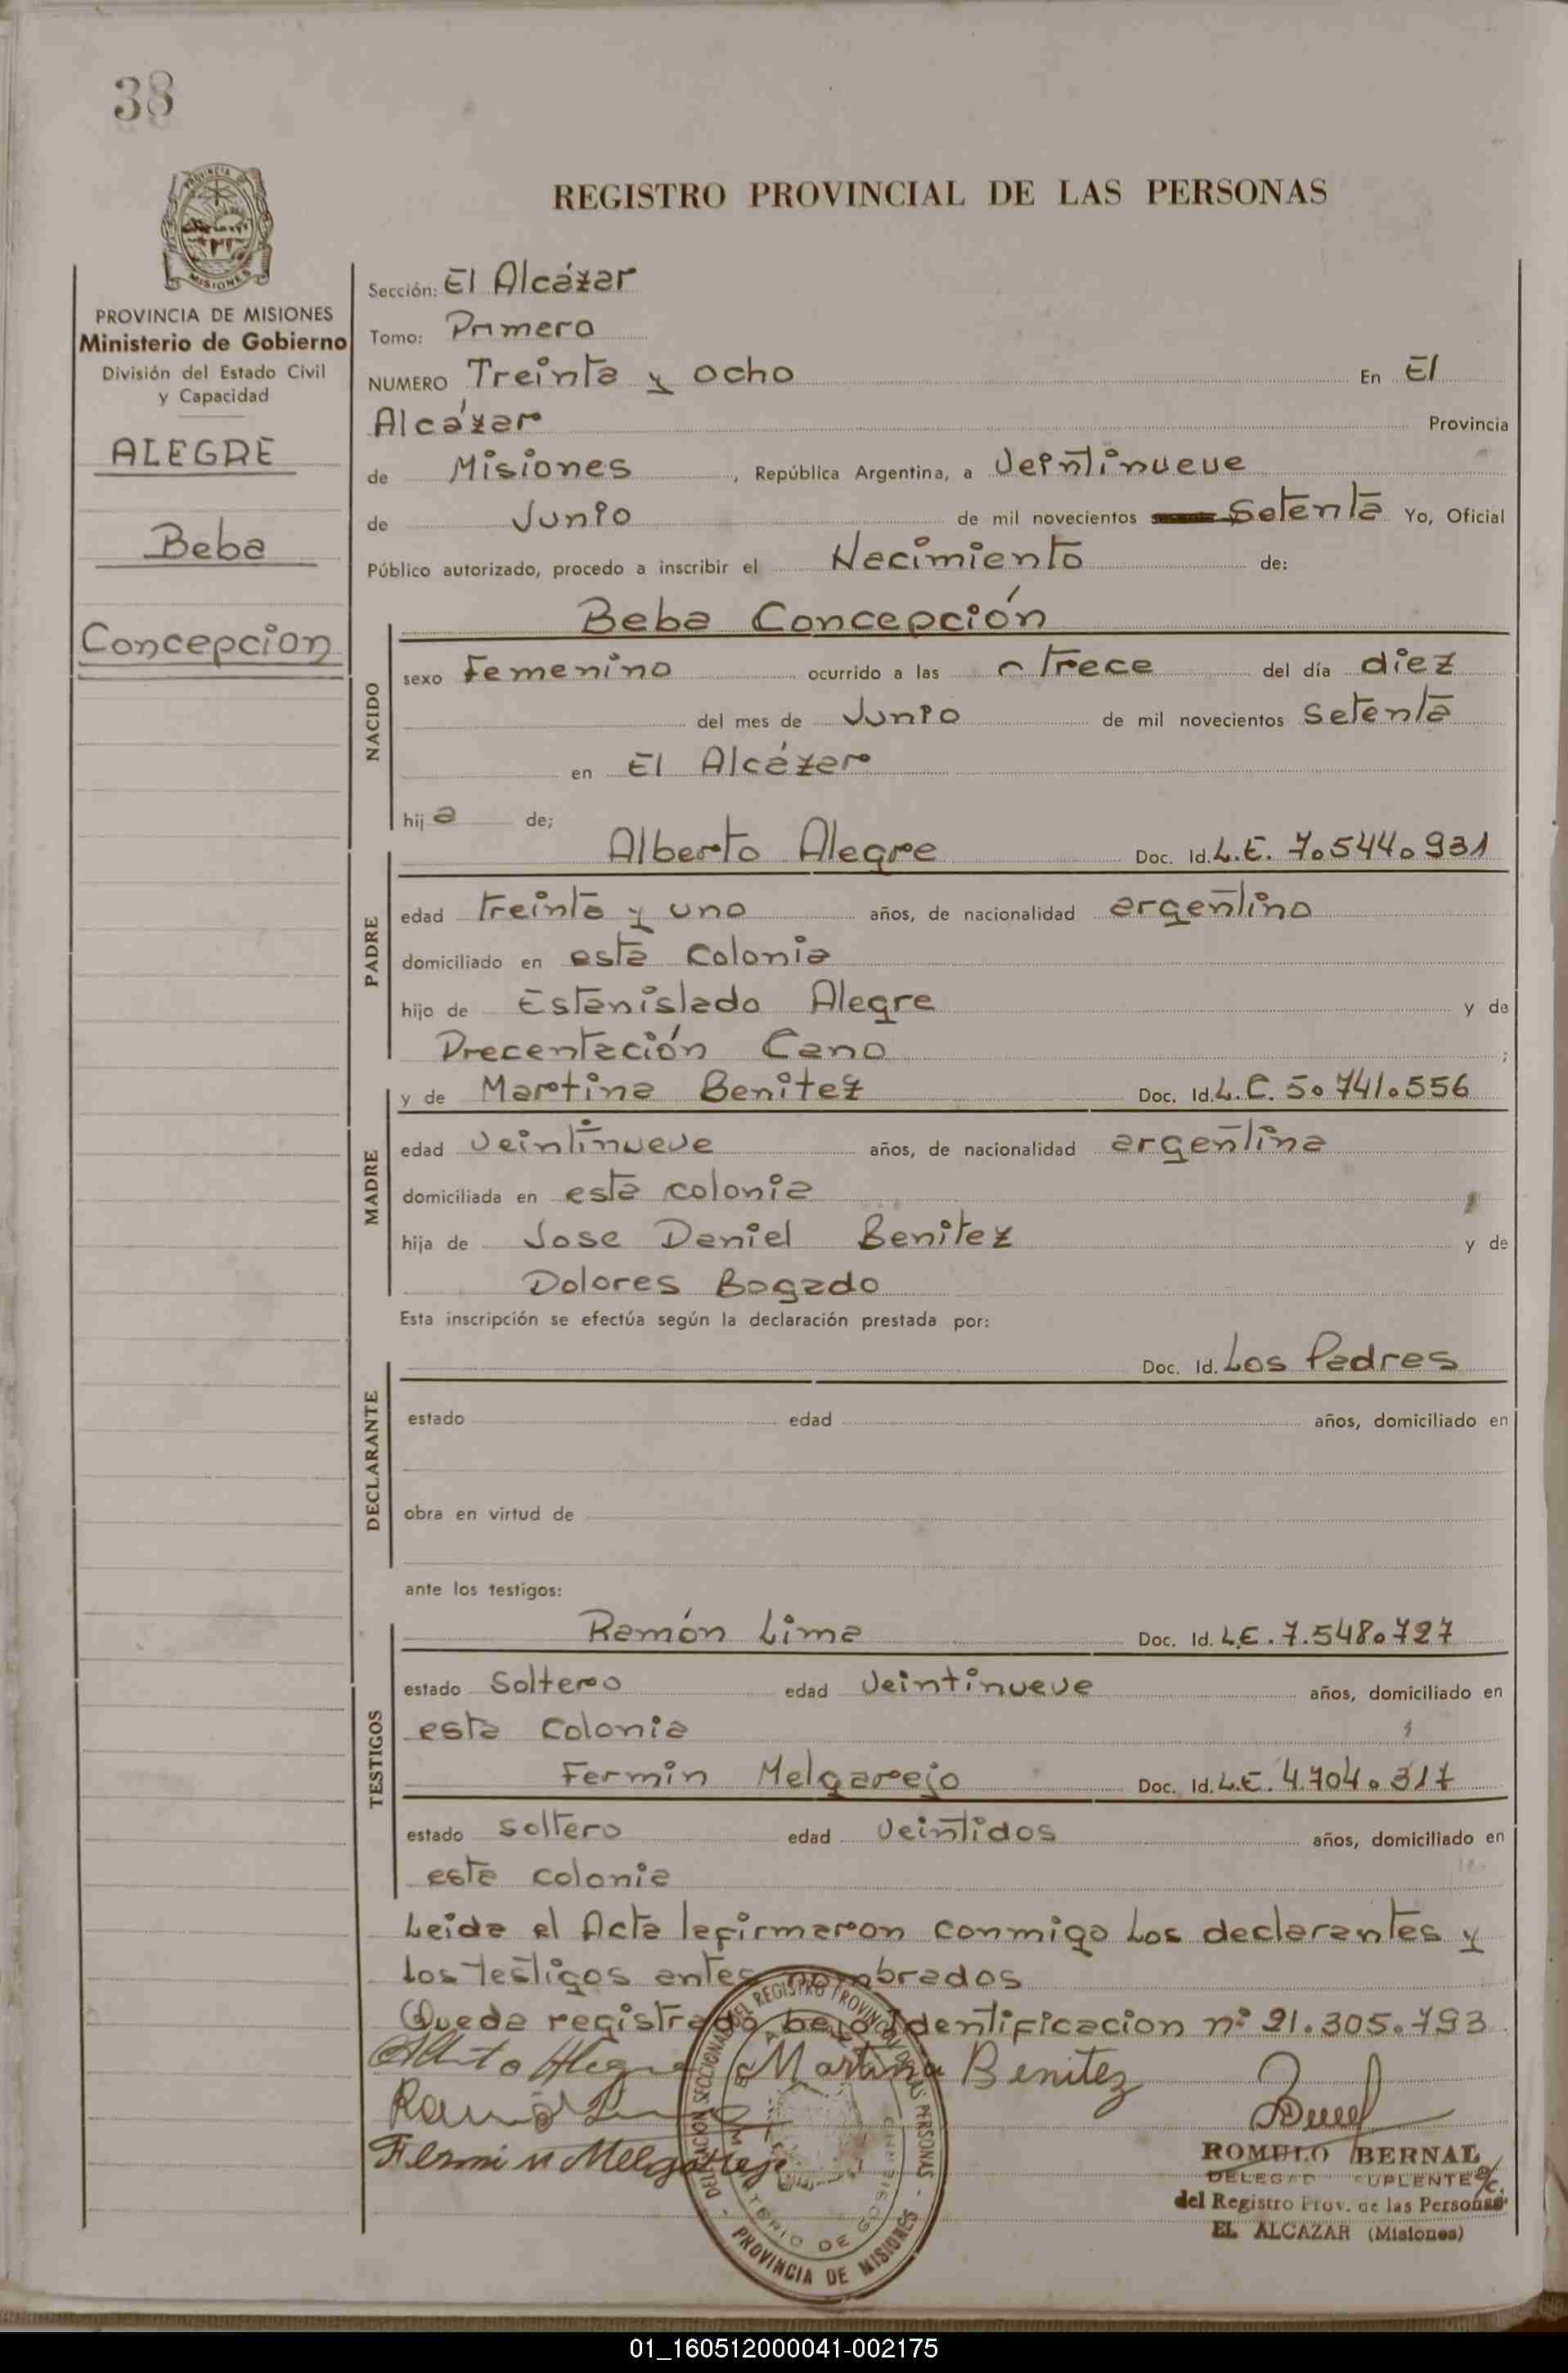 38
REGISTRO PROVINCIAL DE LAS PERSONAS
PROVINCIA DE MISIONES
Ministerio de Gobierno
División del Estado Civil
y Capacidad
ALEGRE
Beba
Concepcion
Sección: El Alcázar
Tomo: Primero
NUMERO Treinta y ocho En El
Alcázar Provincia
de Misiones, República Argentina, a Veintinueve
de Junio de mil novecientos Setenta Yo, Oficial
Público autorizado, procedo a inscribir el Nacimiento de:
NACIDO
Beba Concepción
sexo Femenino ocurrido a las trece del día diez
del mes de Junio de mil novecientos Setenta
en El Alcázar
hija de;
PADRE
Alberto Alegre Doc. Id. L.E. 7.544.931
edad treinta y uno años, de nacionalidad argentino
domiciliado en esta Colonia
hijo de Estanislado Alegre y de
Precentación Cano ;
MADRE
y de Martina Benitez Doc. Id. L.C. 5.741.556
edad Veintinueve años, de nacionalidad argentina
domiciliada en esta colonia
hija de Jose Daniel Benitez y de
Dolores Bogado
Esta inscripción se efectúa según la declaración prestada por:
DECLARANTE
Doc. Id. Los Padres
estado edad años, domiciliado en
obra en virtud de
ante los testigos:
TESTIGOS
Ramón Lima Doc. Id. L.E. 7.548.727
estado Soltero edad Veintinueve años, domiciliado en
esta Colonia
Fermin Melgarejo Doc. Id. L.E. 4.704.317
estado soltero edad Veintidos años, domiciliado en
esta colonia
Leida el Acta lafirmaron conmigo Los declarantes y
los testigos antes nombrados
Queda registrado bajo Identificacion nº 21.305.793
Alberto Alegre Martina Benitez
Ramón Lima
Fermin Melgarejo
DELEGACION SECCIONAL DEL REGISTRO PROVINCIAL DE LAS PERSONAS
MINISTERIO DE GOBIERNO
PROVINCIA DE MISIONES
ROMULO BERNAL
DELEGADO SUPLENTE
del Registro Prov. de las Personas
EL ALCAZAR (Misiones)
01_160512000041-002175